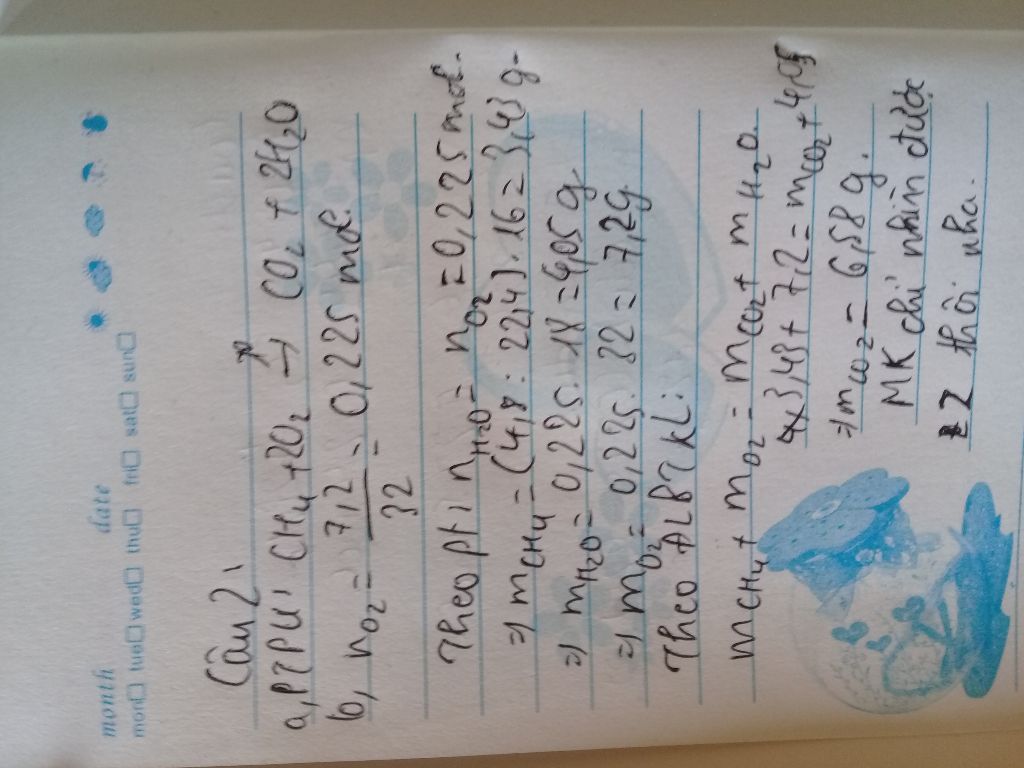 month date
mon tue wed thu fri sat sun
Câu 2:
a, PTPƯ: CH4 + 2O2 → CO2 + 2H2O
b, nO2 = 7,2 / 32 = 0,225 mol.
Theo pt: nH2O = nO2 = 0,225 mol.
=> mCH4 = (4,8 : 22,4) . 16 = 3,43 g.
=> mH2O = 0,225 . 18 = 4,05 g
=> mO2 = 0,225 . 32 = 7,2g
Theo ĐLBTKL:
mCH4 + mO2 = mCO2 + mH2O.
3,43 + 7,2 = mCO2 + 4,05
=> mCO2 = 6,58 g.
MK chỉ nhìn được
2 thôi nha.